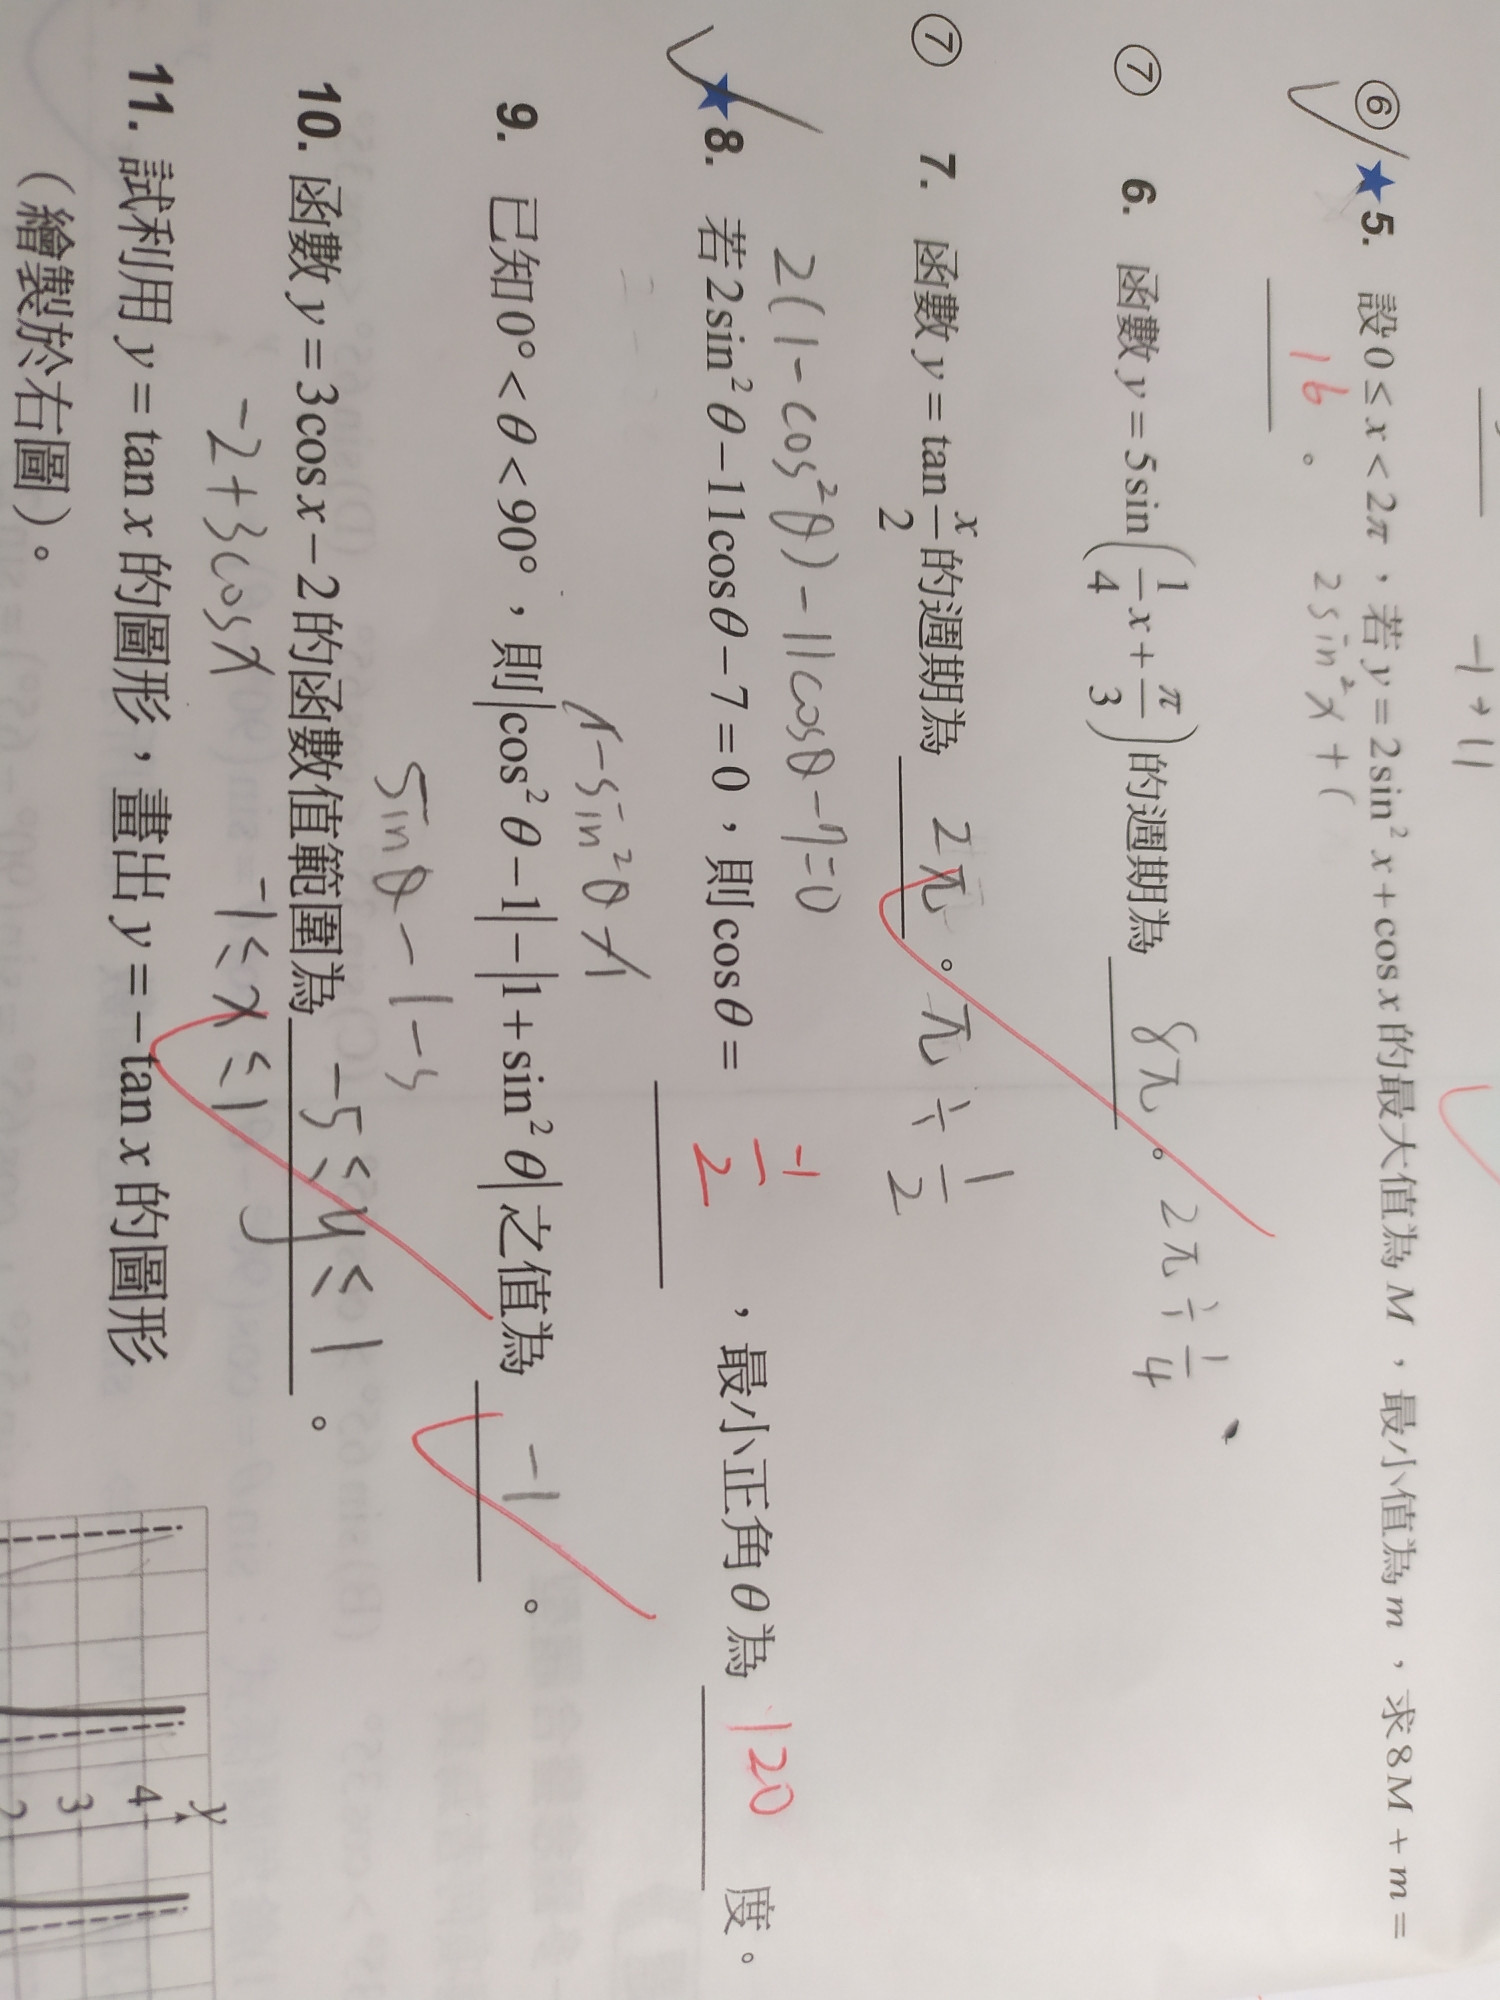 -1 → 11
⑥ ★5. 設0 ≤ x < 2π，若y = 2sin² x + cos x的最大值為M，最小值為m，求8M + m =
16。 2sin²x + (
⑦ 6. 函數y = 5sin(1/4 x + π/3)的週期為 8π。 2π ÷ 1/4
⑦ 7. 函數y = tan x/2 的週期為 2π。 π ÷ 1/2
2(1-cos²θ) - 11cosθ - 7 = 0
★8. 若2sin²θ - 11cosθ - 7 = 0，則cosθ = -1/2，最小正角θ為 120 度。
1-sin²θ
9. 已知0° < θ < 90°，則|cos²θ - 1| - |1 + sin²θ|之值為 -1。
sinθ - 1 - s
10. 函數y = 3cos x - 2的函數值範圍為 -5 ≤ y ≤ 1。
-2 + 3cosx -1 ≤ x ≤ 1
11. 試利用y = tan x的圖形，畫出y = -tan x的圖形
（繪製於右圖）。
y
4
3
2